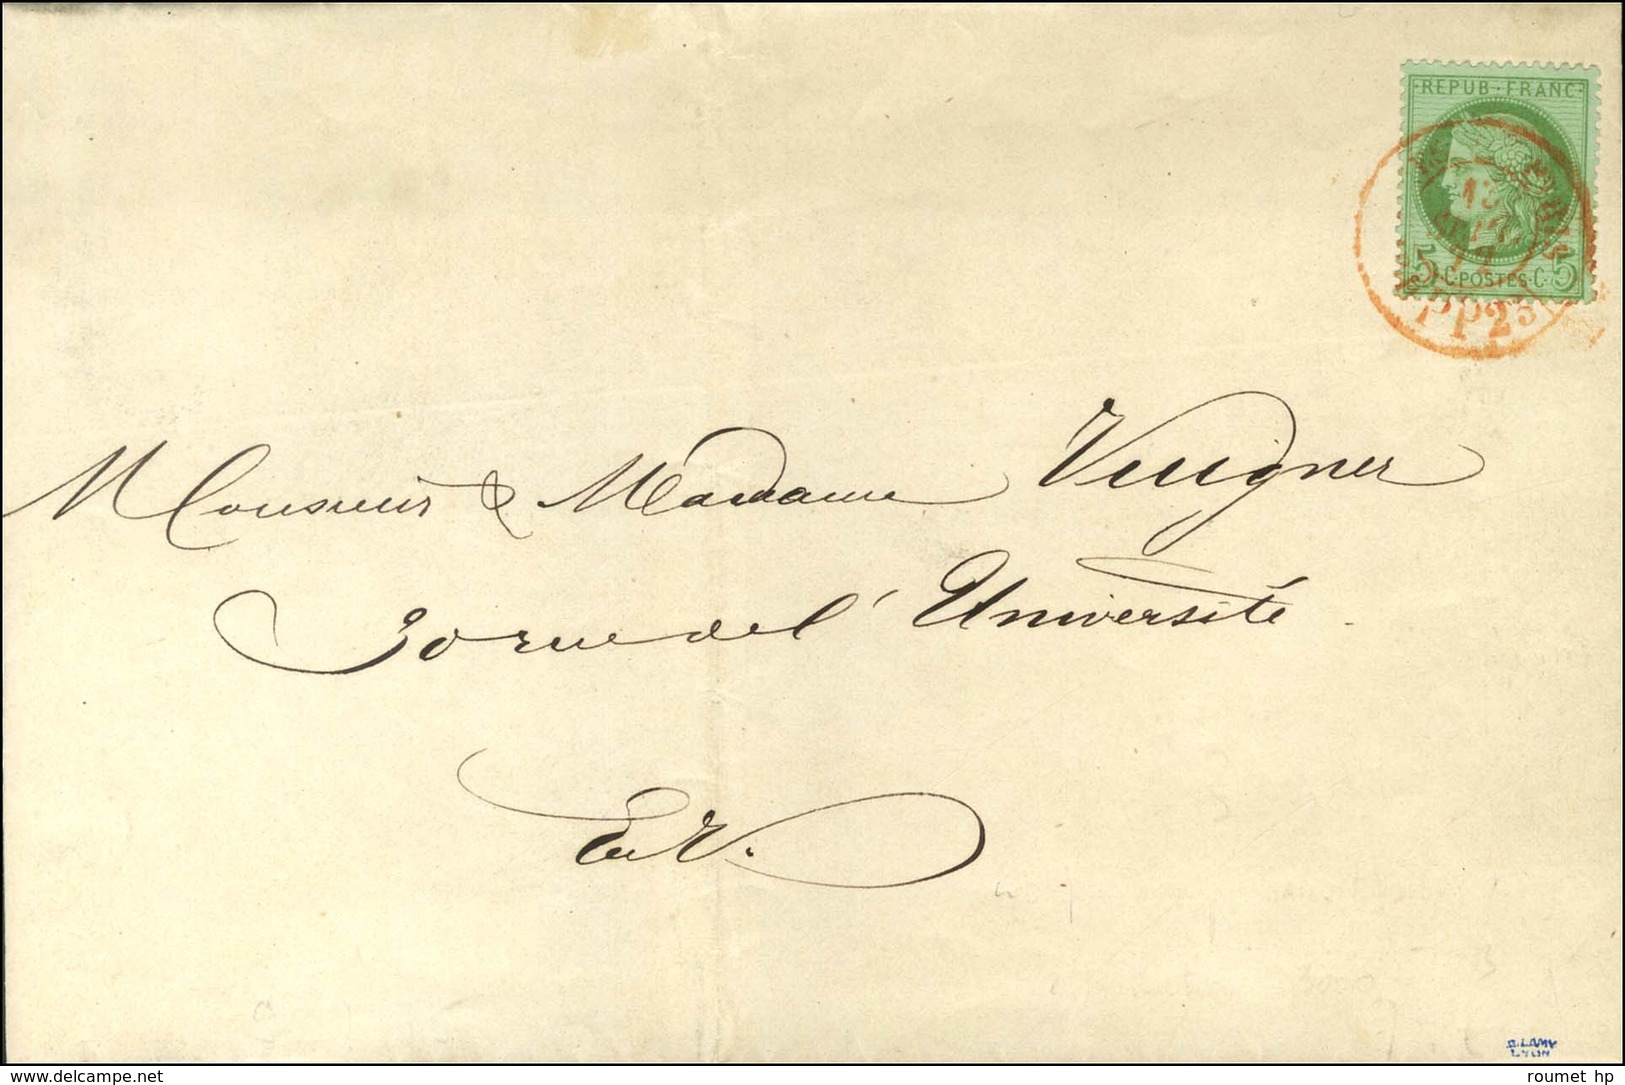 REPUB · FRANC
5 · C · POSTES · C · 5
PARIS
13
PP23
Monsieur & Madame Vuigner
30 rue de l'Université
En V.
3000
LYON
www.delcampe.net
roumet hp